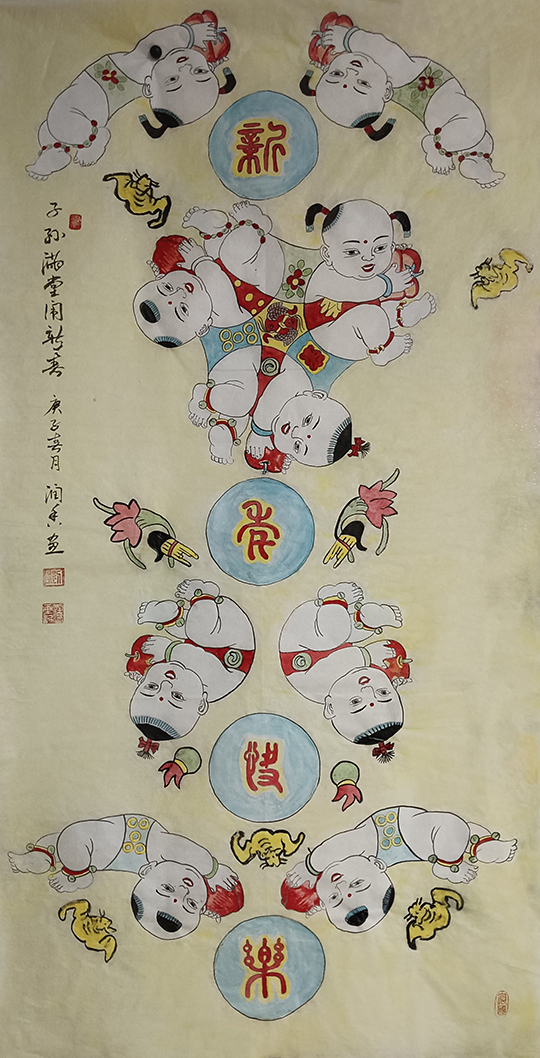 新
年
快
樂
子孙满堂闹新春
庚子春月 润生画